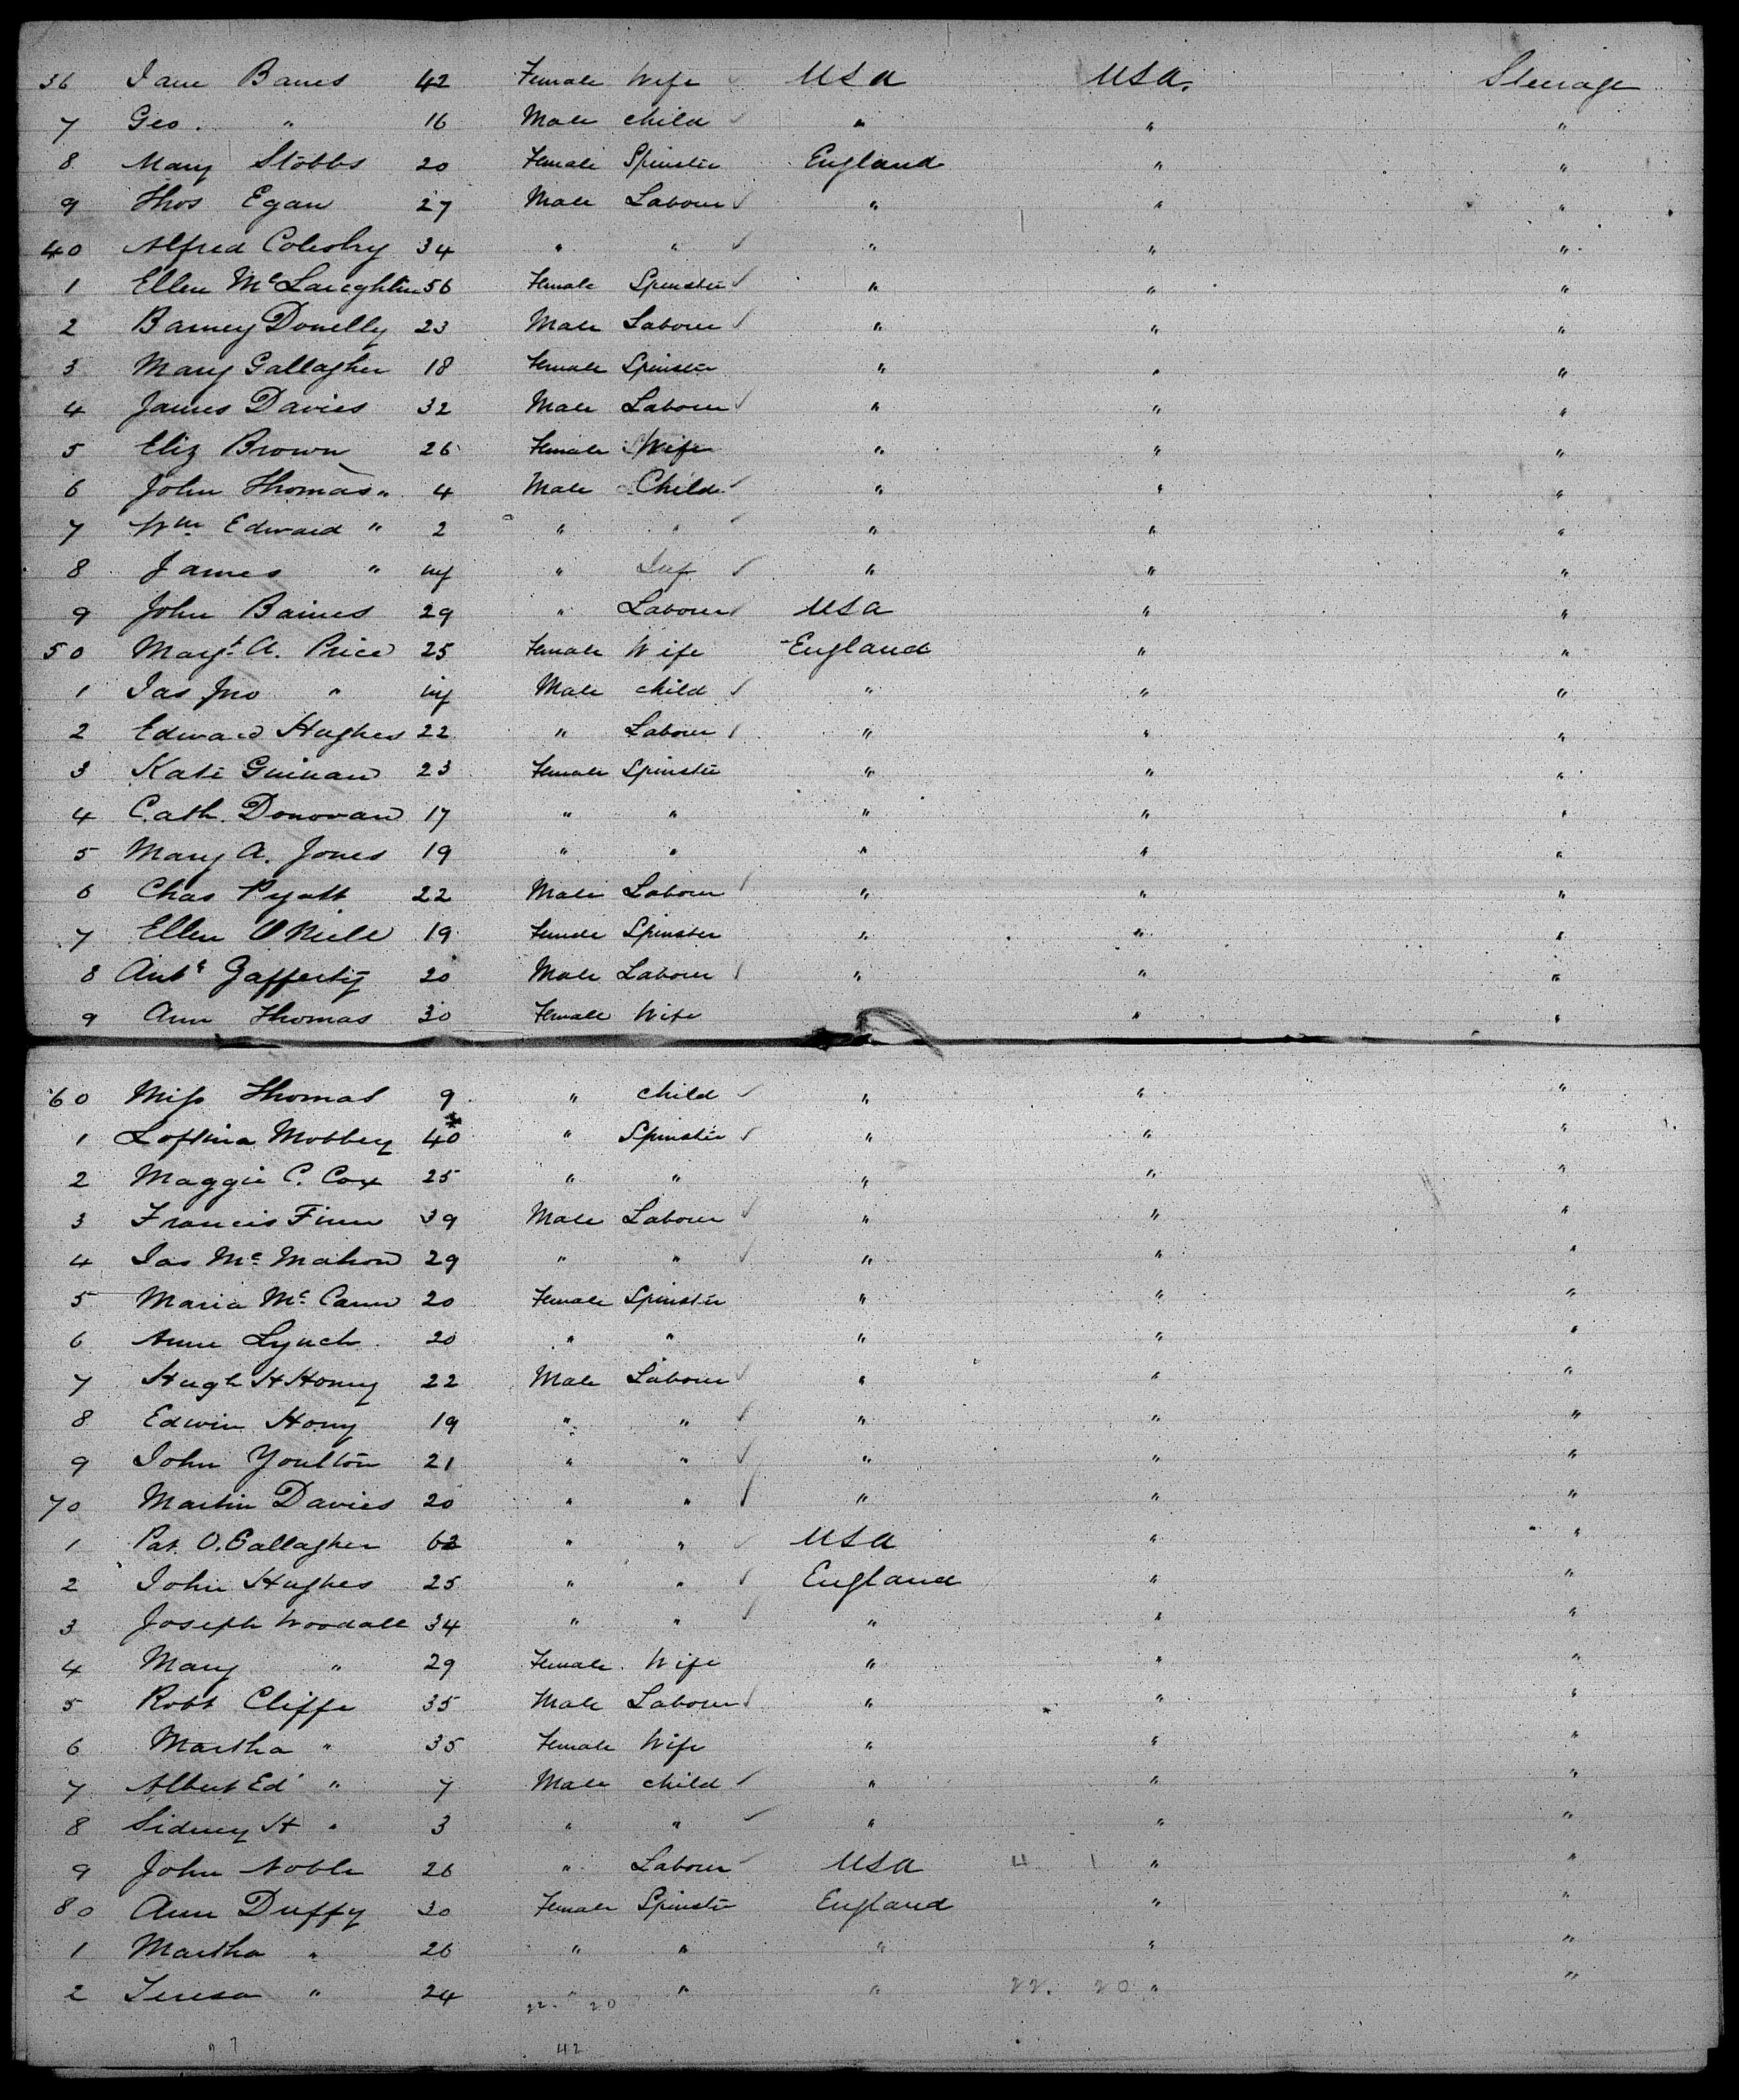 36 Jane Banes 42 Female Wife USA USA. Steerage
7 Geo. " 16 Male child " " "
8 Mary Stobbs 20 Female Spinster England " "
9 Thos Egan 27 Male Labourer " " "
40 Alfred Colesby 34 " " " " "
1 Ellen McLaughlin 56 Female Spinster " " "
2 Barney Donelly 23 Male Labourer " " "
3 Mary Gallagher 18 Female Spinster " " "
4 James Davies 32 Male Labourer " " "
5 Eliz Brown 26 Female Wife " " "
6 John Thomas " 4 Male Child " " "
7 Wm Edward " 2 " " " " "
8 James " inf " Inf " " "
9 John Baines 29 " Labourer USA " "
50 Margt A. Price 25 Female Wife England " "
1 Jas Jno " inf Male child " " "
2 Edward Hughes 22 " Labourer " " "
3 Kate Guinan 23 Female Spinster " " "
4 Cath. Donovan 17 " " " " "
5 Mary A. Jones 19 " " " " "
6 Chas Pyatt 22 Male Labourer " " "
7 Ellen O'Neill 19 Female Spinster " " "
8 Anty Gafferty 20 Male Labourer " " "
9 Ann Thomas 30 Female Wife " "
60 Miss Thomas 9 " child " " "
1 Mobbey 40 " Spinster " " "
2 Maggie C. Cox 25 " " " " "
3 Francis Finn 39 Male Labourer " " "
4 Jas McMahon 29 " " " " "
5 Maria McCann 20 Female Spinster " " "
6 Anne Lynch 20 " " " " "
7 Hugh H Hony 22 Male Labourer " " "
8 Edwin Hony 19 " " " " "
9 John Youlton 21 " " " " "
70 Martin Davies 20 " " " " "
1 Pat. O.Gallagher 62 " " USA " "
2 John Hughes 25 " " England " "
3 Joseph Woodall 34 " " " " "
4 Mary " 29 Female Wife " " "
5 Robt Cliffe 35 Male Labourer " " "
6 Martha " 35 Female Wife " " "
7 Albert Ed " 7 Male child " " "
8 Sidney H " 3 " " " " "
9 John Noble 26 " Labourer USA 4 1 " "
80 Ann Duffy 30 Female Spinster England " "
1 Martha " 26 " " " " "
2 Teresa " 24 " " " 22. 20 " "
22. 20
42